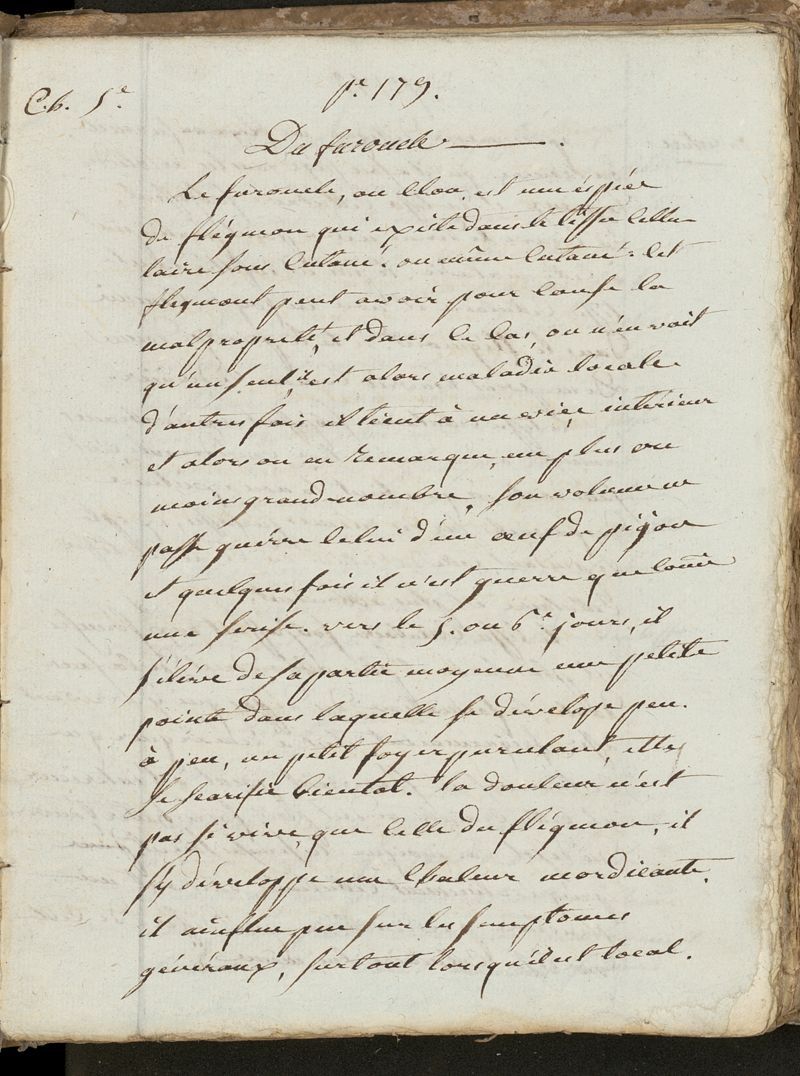 Ch. 5e. pe. 179.
Du furoncle
Le furoncle, ou clou, est une éspèce
de flégmon qui existe dans le tissu cellu
laire sous cutané. ou même cutané. cet
flegmont peut avoir pour cause la
malpropreté, et dans ce cas, on n'en voit
qu'un seul, il est alors maladie locale.
d'autres fois il tient à un vice intérieur
et alors on en remarque, un plus ou
moins grand nombre. son volume ne
passe guérre celui d'un oeuf de pigon
et quelques fois il n'est guerre que come
une serise. vers le 5. ou 6e. jours, il
s'éléve de sa partie moyenne une petite
pointe dans laquelle se dévelope peu.
à peu, un petit foyer purulant, elle
se scarifie bientot. la douleur n'est
pas si vive, que celle du flégmon, il
s'y développe une chaleur mordicante.
il influe peu sur les simptomes
généraux, surtout lorsqu'il est local.